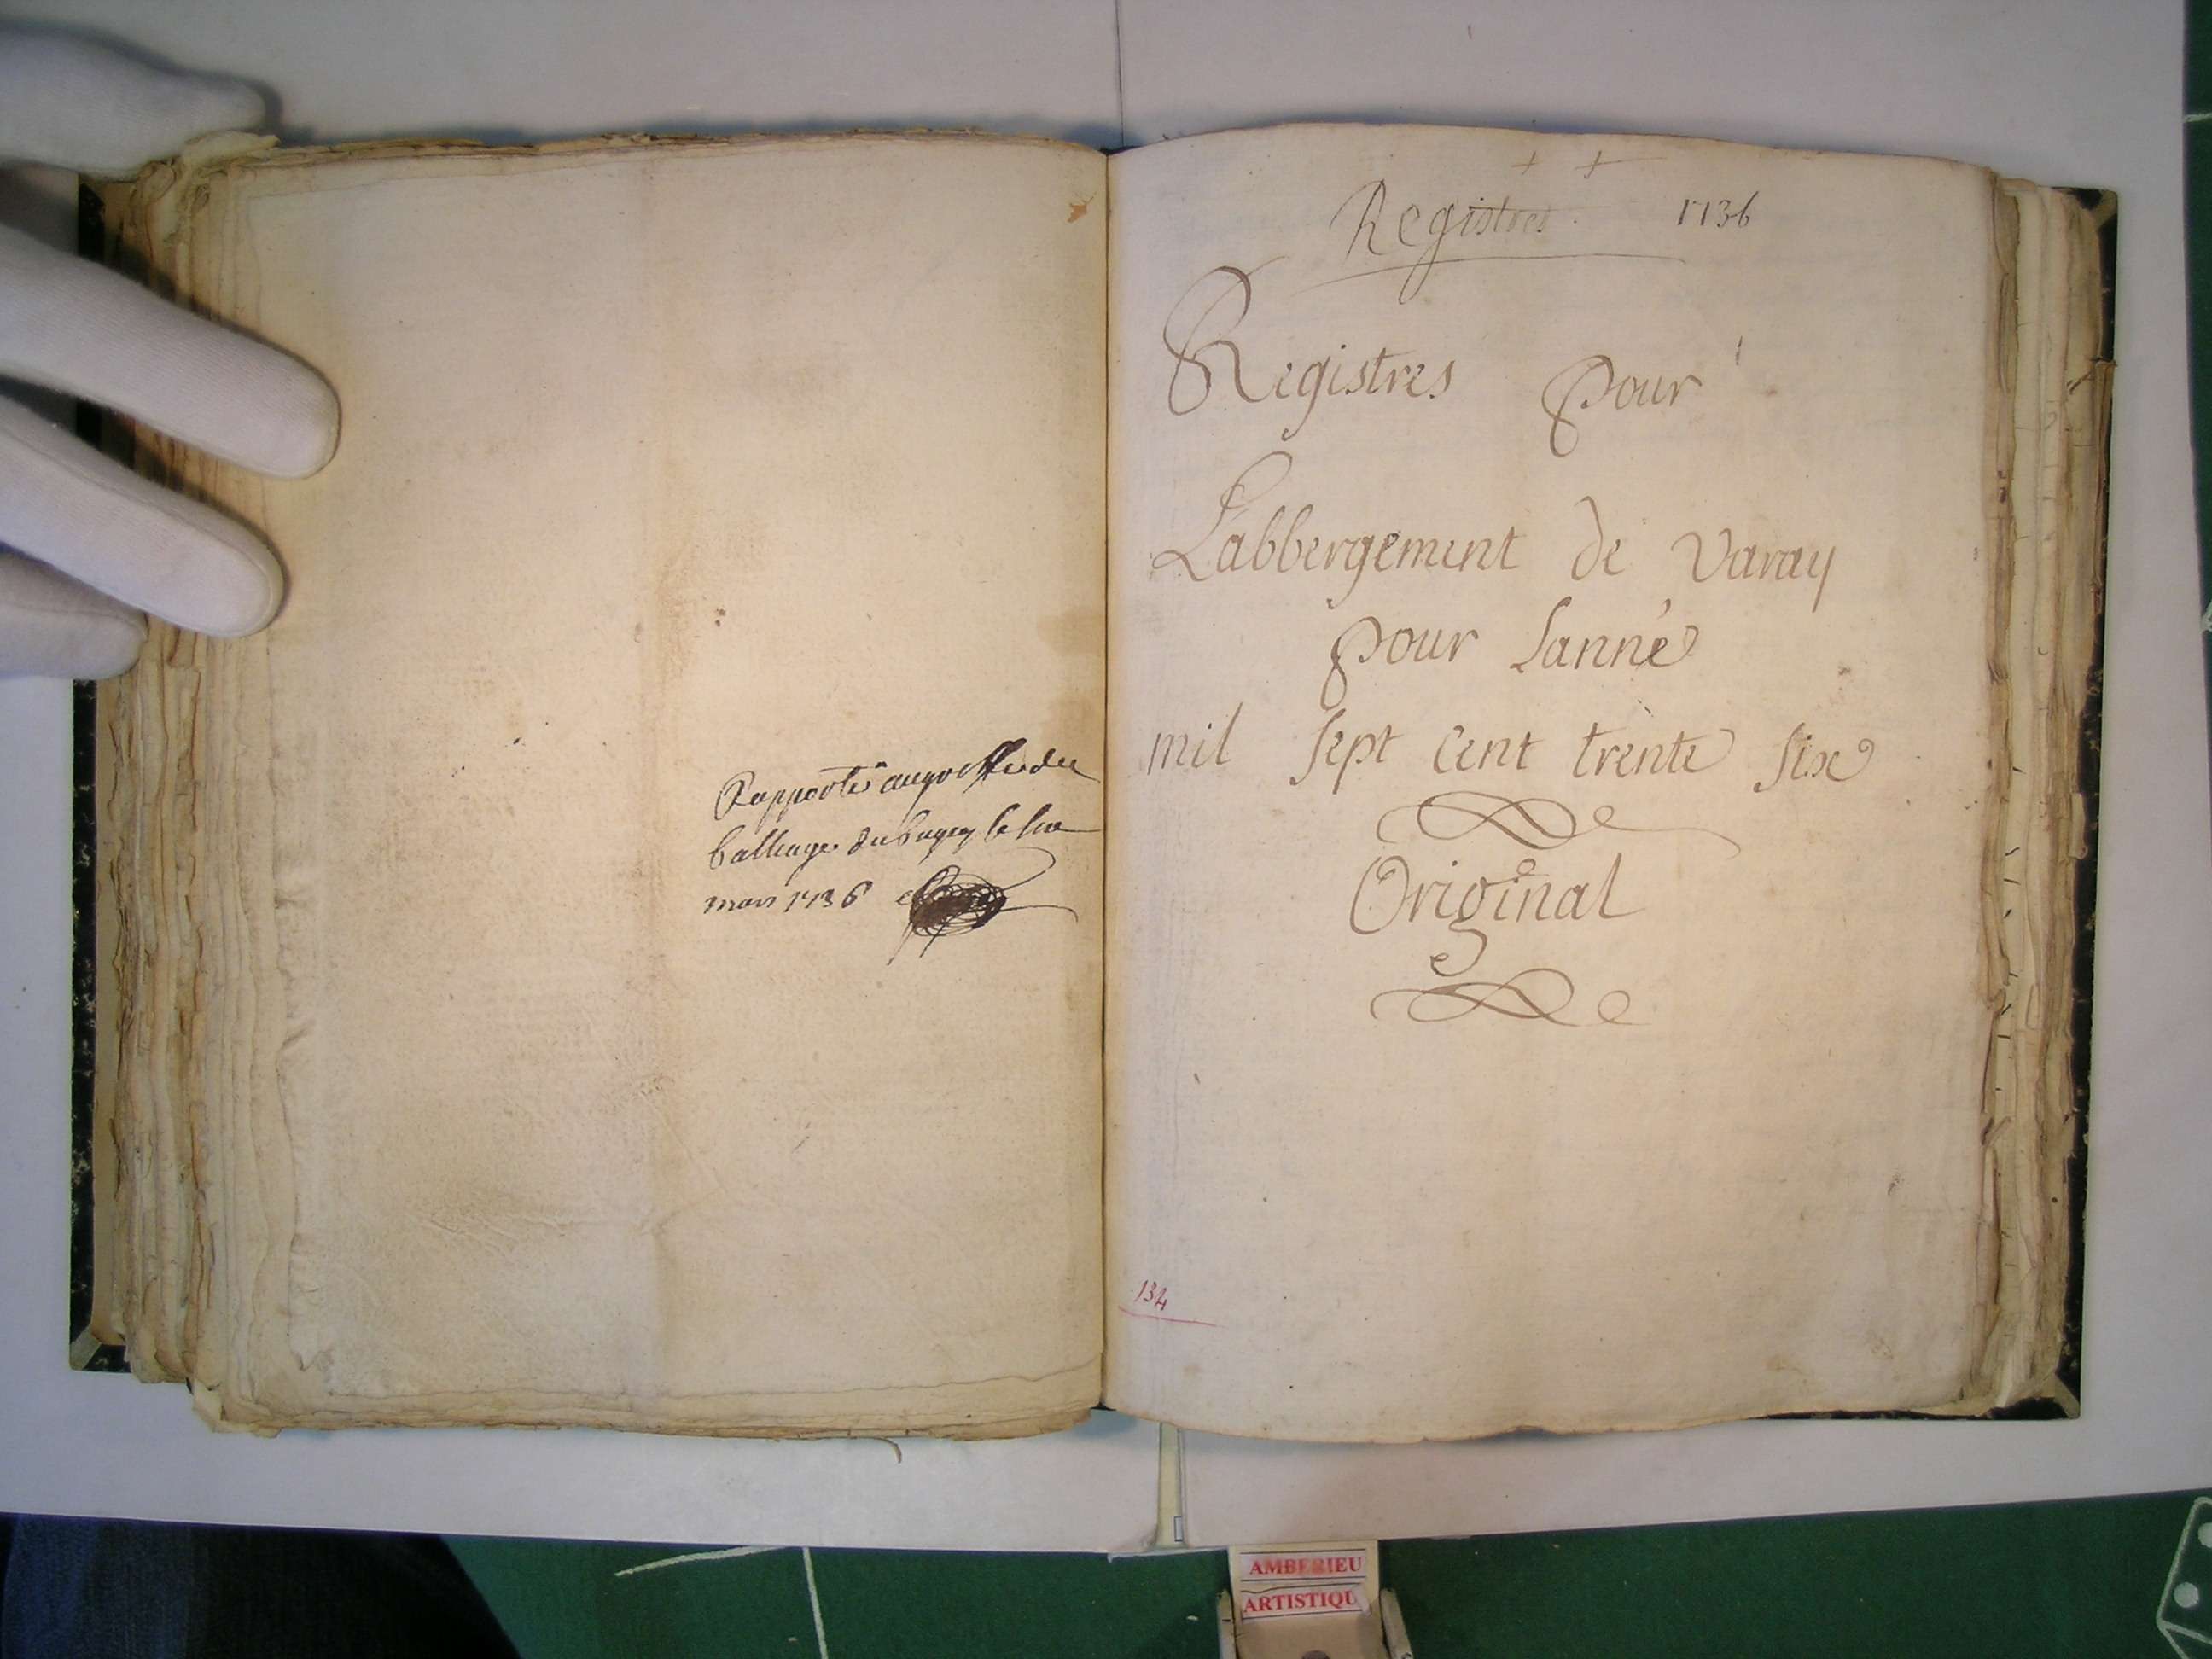 Rapporté au greffe du
balliage du bugey le
mars 1736
Registres 1736
Registres pour
Labbergement de Varay
pour Lanné
mil sept cent trente six
Original
134
AMBERIEU
ARTISTIQU